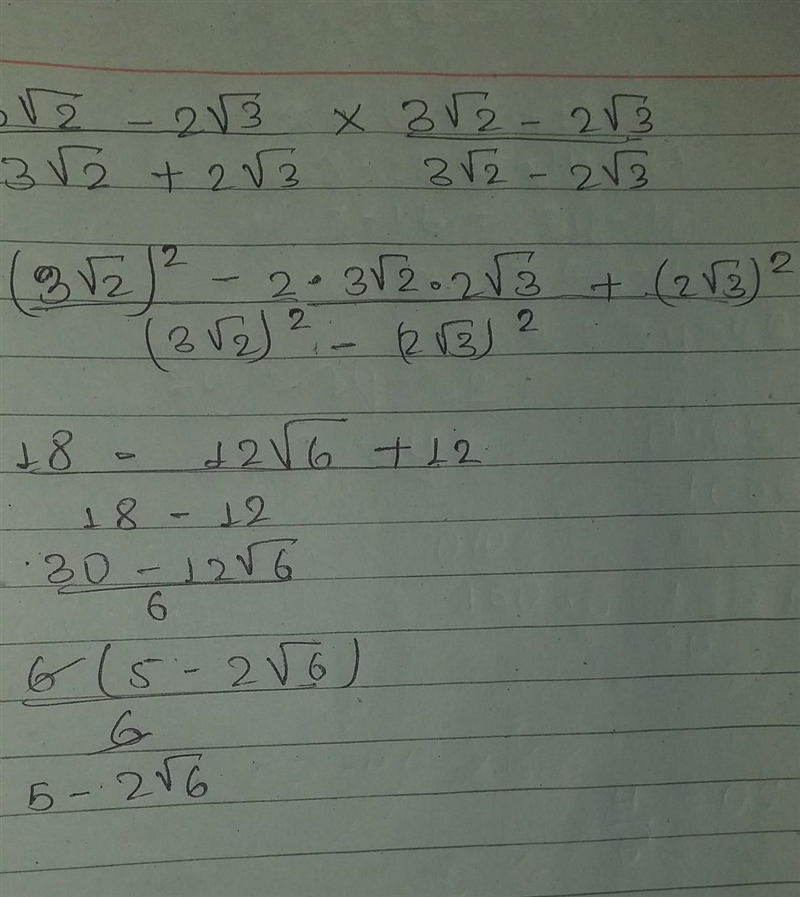 √2 - 2√3 × 3√2 - 2√3
3√2 + 2√3 3√2 - 2√3
(3√2)² - 2·3√2·2√3 + (2√3)²
(3√2)² - (2√3)²
18 - 12√6 + 12
18 - 12
30 - 12√6
6
6(5 - 2√6)
6
5 - 2√6